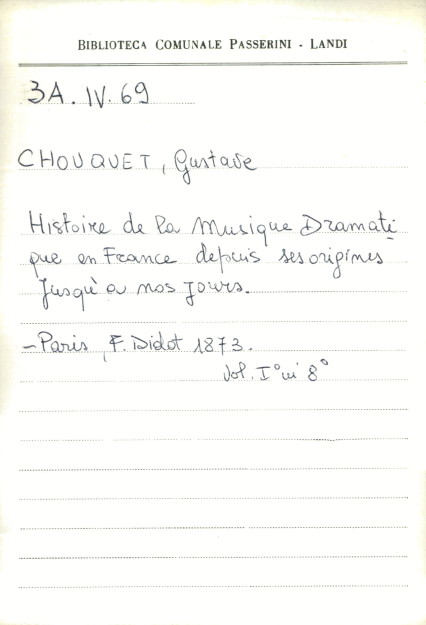 BIBLIOTECA COMUNALE PASSERINI - LANDI
3A. IV. 69
CHOUQUET, Gustave
Histoire de la Musique Dramati
que en France depuis ses origines
Jusqu'a nos Jours.
- Paris, F. Didot 1873.
Vol. I° in 8°